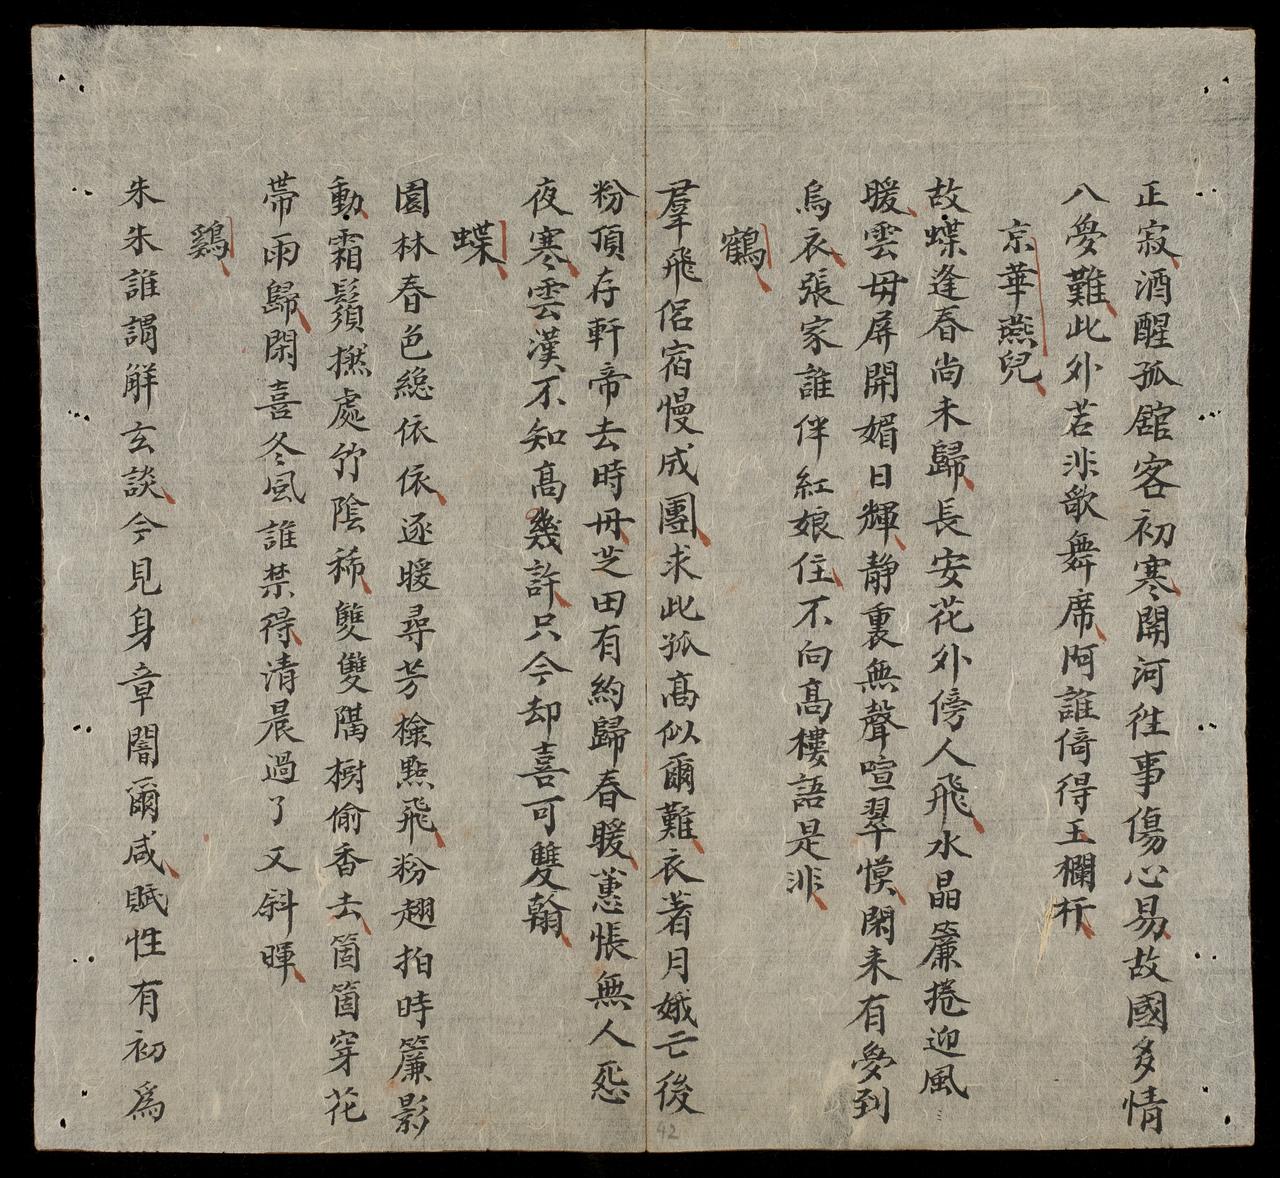 正寂酒醒孤舘客初寒開河徃事傷心易故國多情
八夢難此外若非歌舞席阿誰倚得玉欄杆
京華燕兒
故蝶逢春尚未歸長安花外傍人飛水晶簾捲迎風
暖雲母屏開媚日輝静裏無聲喧翠幙閑来有夢到
烏衣張家誰伴紅娘住不向高樓語是非
鶴
羣飛侶宿慢成團求此孤高似爾難衣著月娥亡後
粉頂存軒帝去時冊芝田有約歸春暖蕙悵無人怨
夜寒雲漢不知高幾許只今却喜可雙翰
蝶
園林春色緫依依逐暖尋芳檢點飛粉翅拍時簾影
動霜鬚撚處竹陰稀雙雙隔樹偷香去箇箇穿花
帶雨歸閑喜冬風誰禁得清晨過了又斜暉
鷄
朱朱誰謂解玄談今見身章闇爾咸賦性有初為